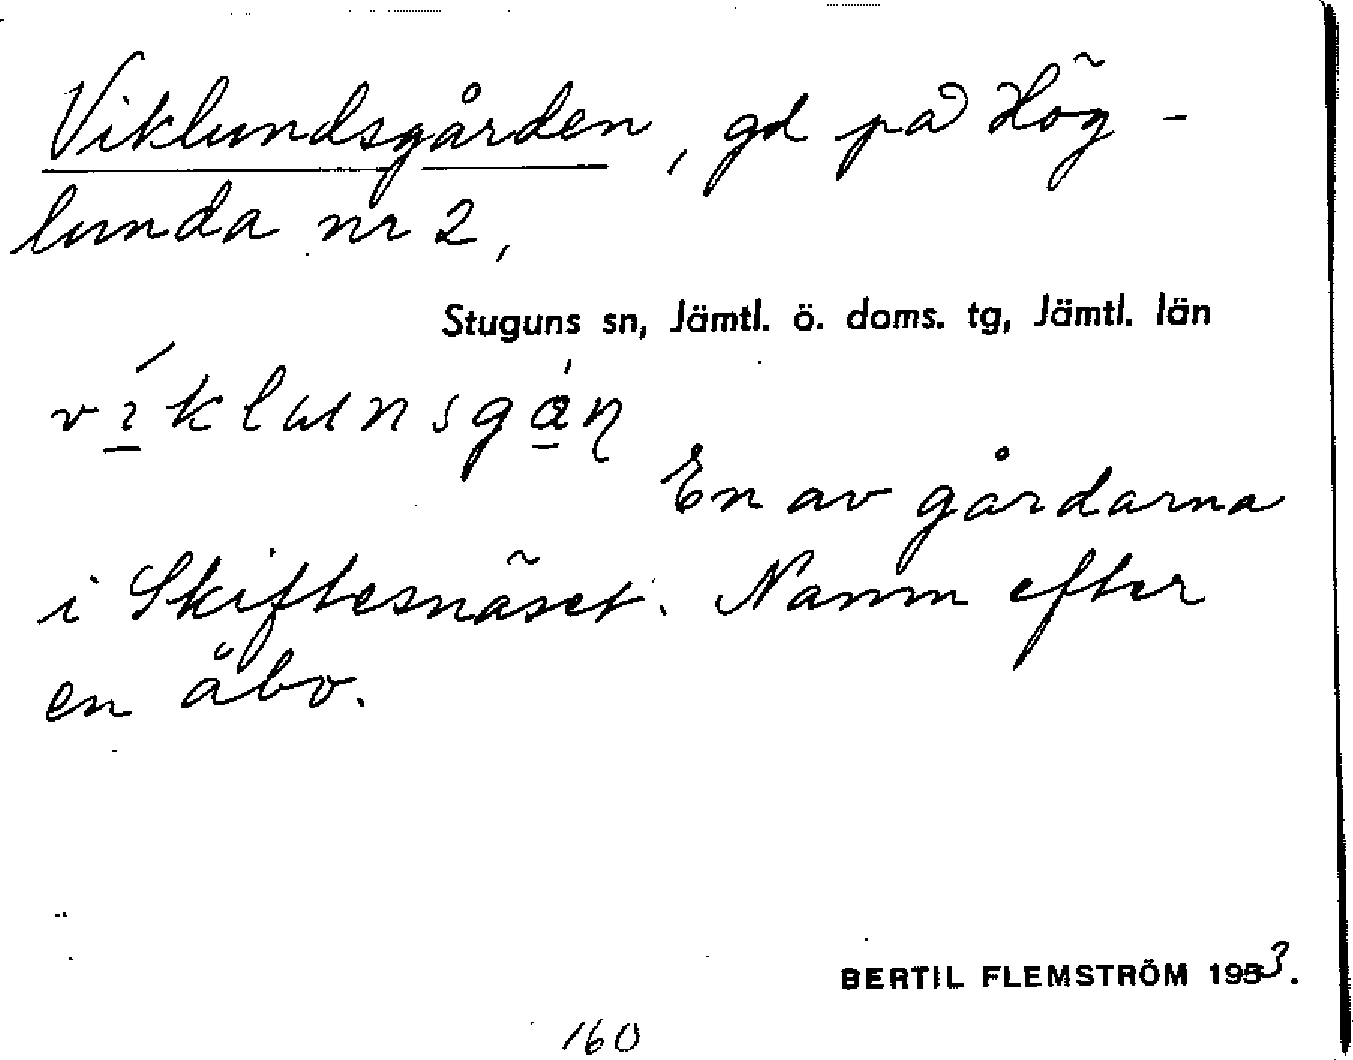 Viklundsgården, gd på Hög-
lunda nr 2,
Stuguns sn, Jämtl. ö. doms. tg, Jämtl. län
víklunsgán
En av gårdarna
i Skiftesnäset. Namn efter
en åbo.
BERTIL FLEMSTRÖM 1953.
160